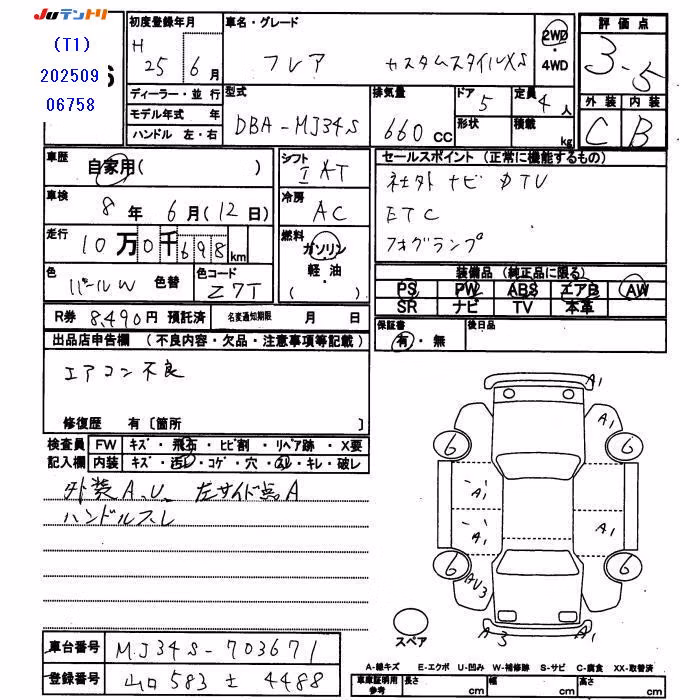 JUテントリ
(T1)
202509
06758
初度登録年月
H 25 6月
ディーラー・並行
モデル年式 年
ハンドル 左・右
車名・グレード
フレア カスタムスタイルXS
2WD
・
4WD
型式
DBA-MJ34S
排気量
660 CC
ドア
5
形状
定員
4人
積載
kg
評価点
3.5
外装 内装
C B
車歴
自家用( )
車検
8年 6月(12日)
走行
10万0千698km
色
パールW 色替
色コード
Z7T
シフト
I AT
冷房
AC
燃料
ガソリン
軽・油
( )
セールスポイント (正常に機能するもの)
社外ナビ DTV
ETC
フォグランプ
装備品 (純正品に限る)
PS PW ABS エアB AW
SR ナビ TV 本革
R券 8,490円 預託済
名変通知期限 月 日
保証書
有・無
後日品
出品店申告欄 (不良内容・欠品・注意事項等記載)
エアコン不良
修復歴 有〔箇所 〕
検査員
記入欄
FW キズ・飛石・ヒビ割・リペア跡・X要
内装 キズ・汚レ・コゲ・穴・スレ・キレ・破レ
外装A、U、 左サイド点A
ハンドルスレ
A1
A1
6
6
A1
A1
A1
6
6
AU3
A3
A1
スペア
車台番号 MJ34S-703671
登録番号 山口 583 さ 4488
A-線キズ E-エクボ U-凹み W-補修跡 S-サビ C-腐食 XX-取替済
車庫証明用
参考
長さ cm 幅 cm 高さ cm